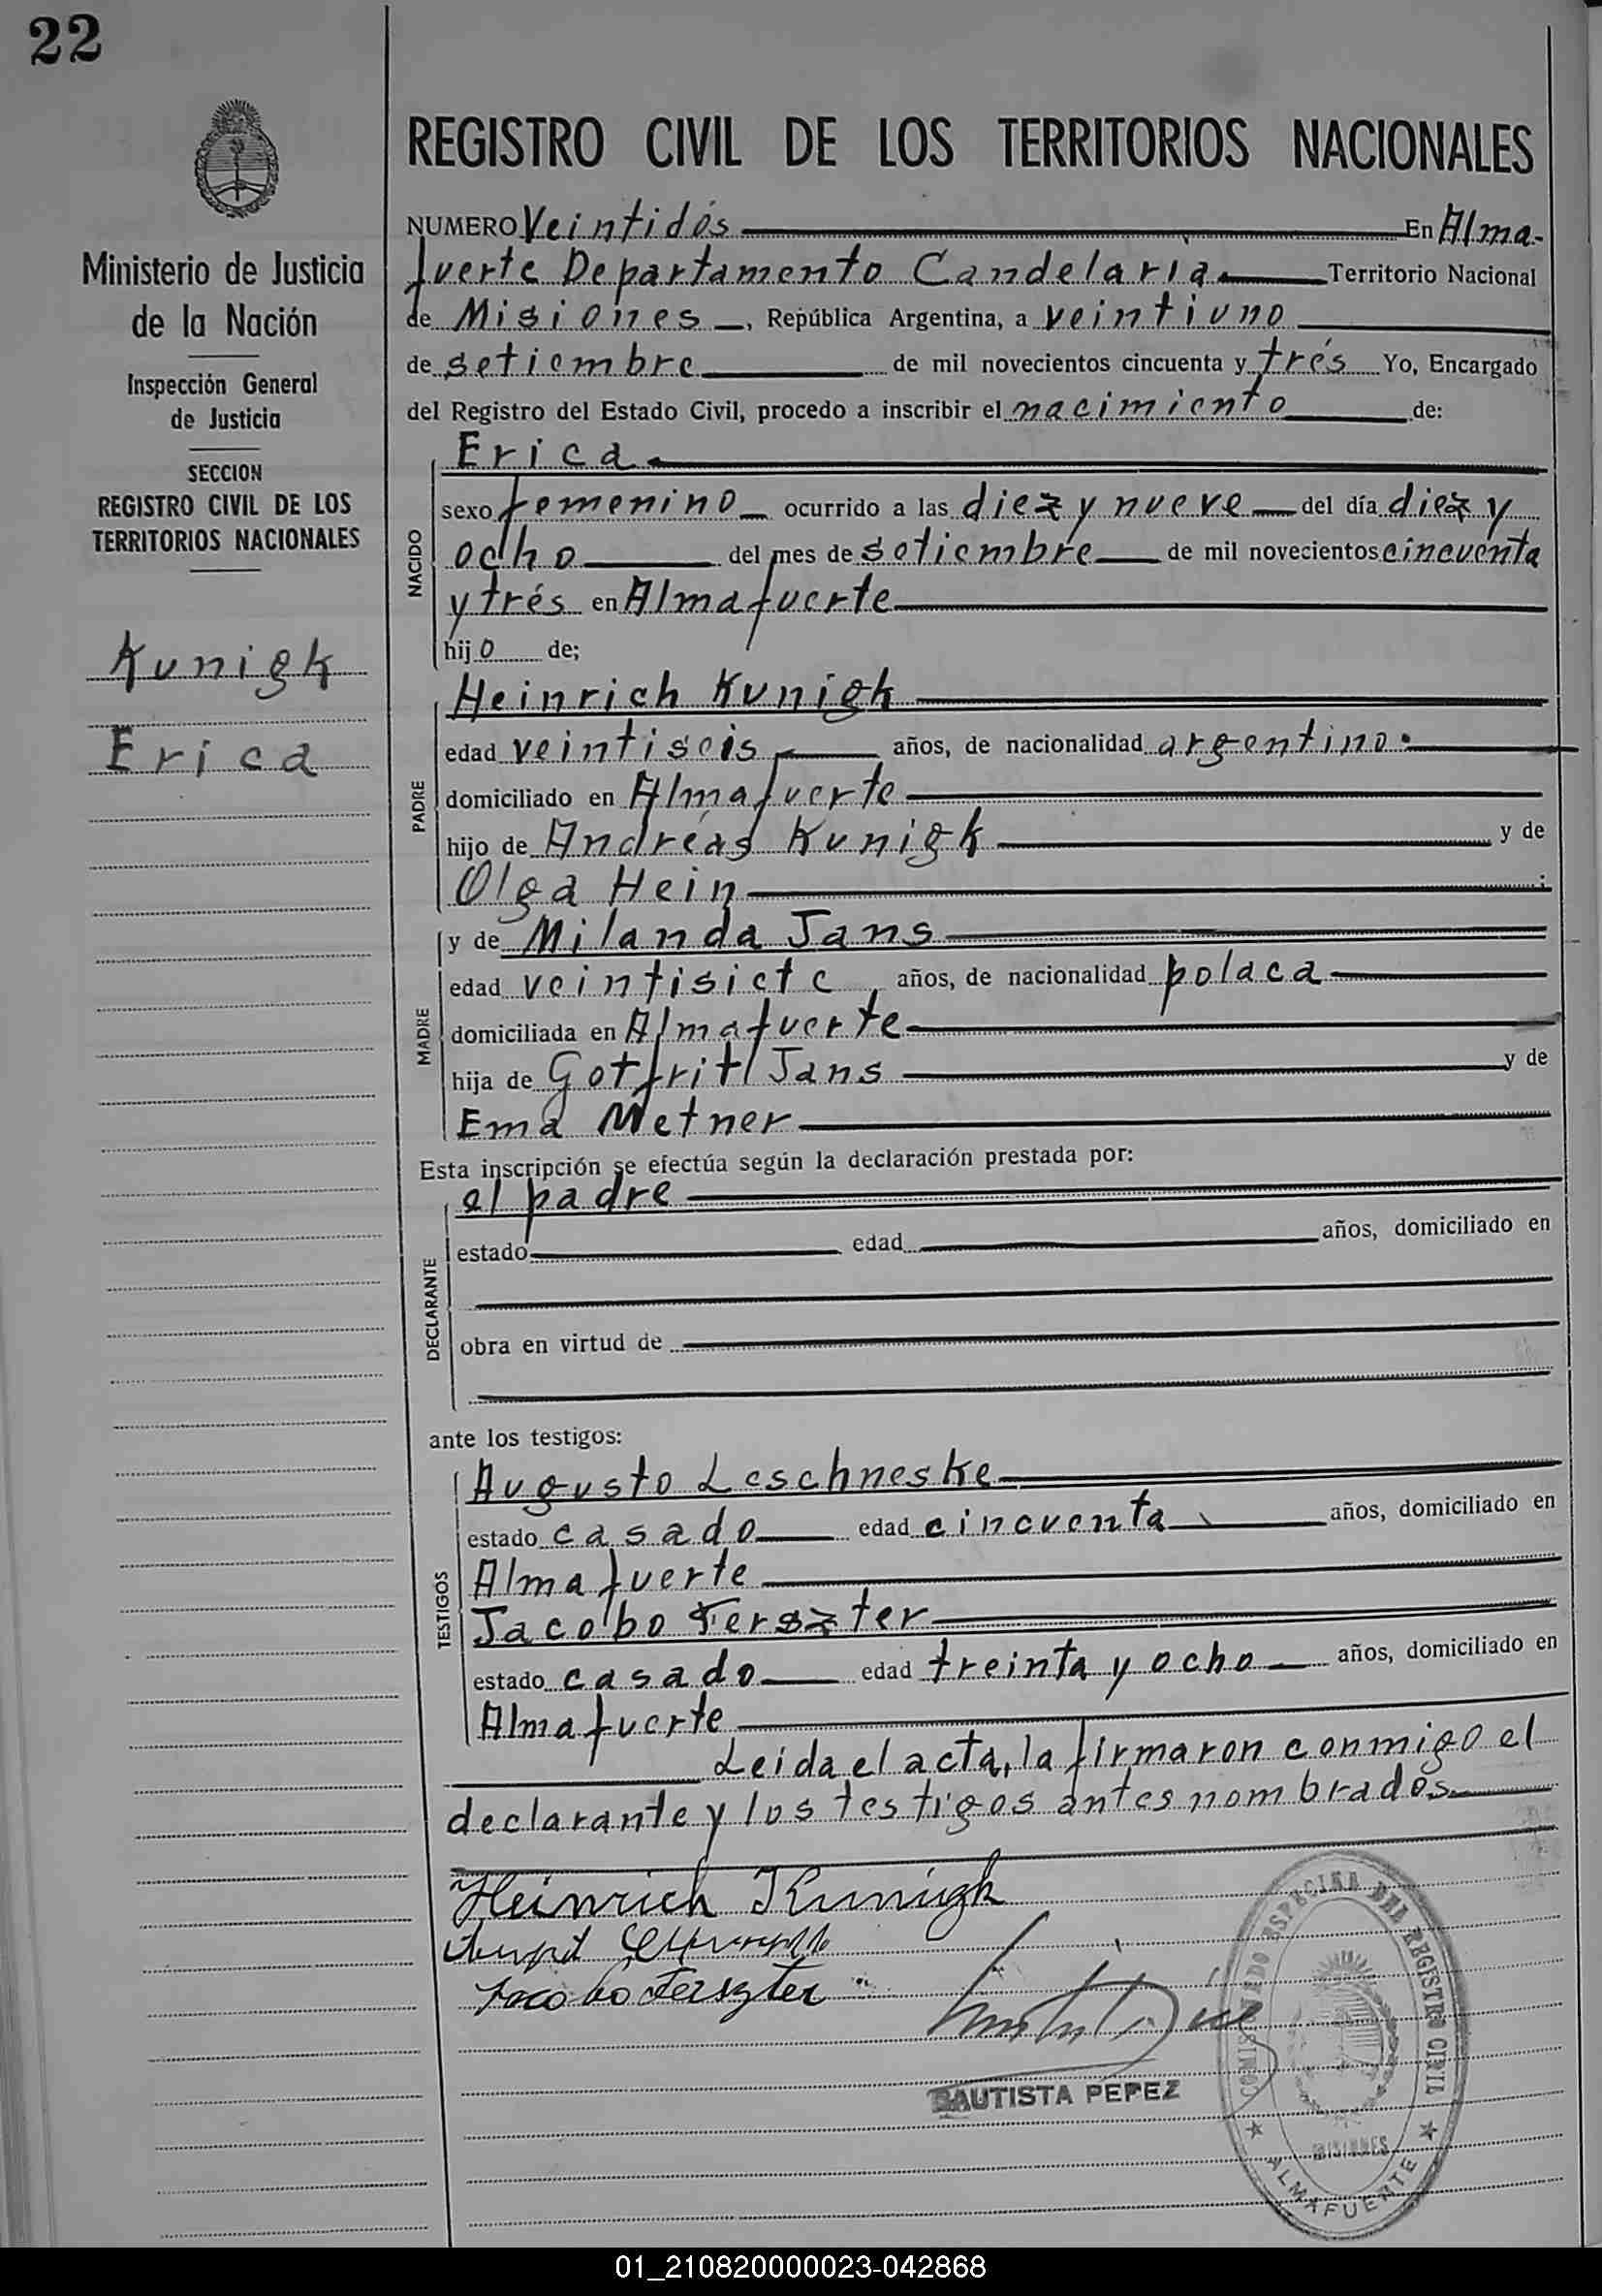 22
Ministerio de Justicia
de la Nación
Inspección General
de Justicia
SECCION
REGISTRO CIVIL DE LOS
TERRITORIOS NACIONALES
Kunigk
Erica
REGISTRO CIVIL DE LOS TERRITORIOS NACIONALES
NUMERO Veintidós En Alma-
fuerte Departamento Candelaria Territorio Nacional
de Misiones, República Argentina, a veintiuno
de setiembre de mil novecientos cincuenta y trés Yo, Encargado
del Registro del Estado Civil, procedo a inscribir el nacimiento de:
Erica
NACIDO
sexo femenino ocurrido a las diez y nueve del día diez y
ocho del mes de setiembre de mil novecientos cincuenta
y trés en Almafuerte
hijo de;
PADRE
Heinrich Kunigk
edad veintiseis años, de nacionalidad argentino.
domiciliado en Almafuerte
hijo de Andréas Kunigk y de
Olga Hein;
MADRE
y de Milanda Jans
edad veintisiete años, de nacionalidad polaca
domiciliada en Almafuerte
hija de Gotfritl Jans y de
Ema Metner
Esta inscripción se efectúa según la declaración prestada por:
DECLARANTE
el padre
estado edad años, domiciliado en
obra en virtud de
ante los testigos:
TESTIGOS
Augusto Leschneske
estado casado edad cincuenta años, domiciliado en
Almafuerte
Jacobo Terszter
estado casado edad treinta y ocho años, domiciliado en
Almafuerte
Leida el acta, la firmaron conmigo el
declarante y los testigos antes nombrados
Heinrich Kunigk
Jacobo Terszter
BAUTISTA PEPEZ
DEL REGISTRO CIVIL
MISIONES
ALMAFUERTE
01_210820000023-042868